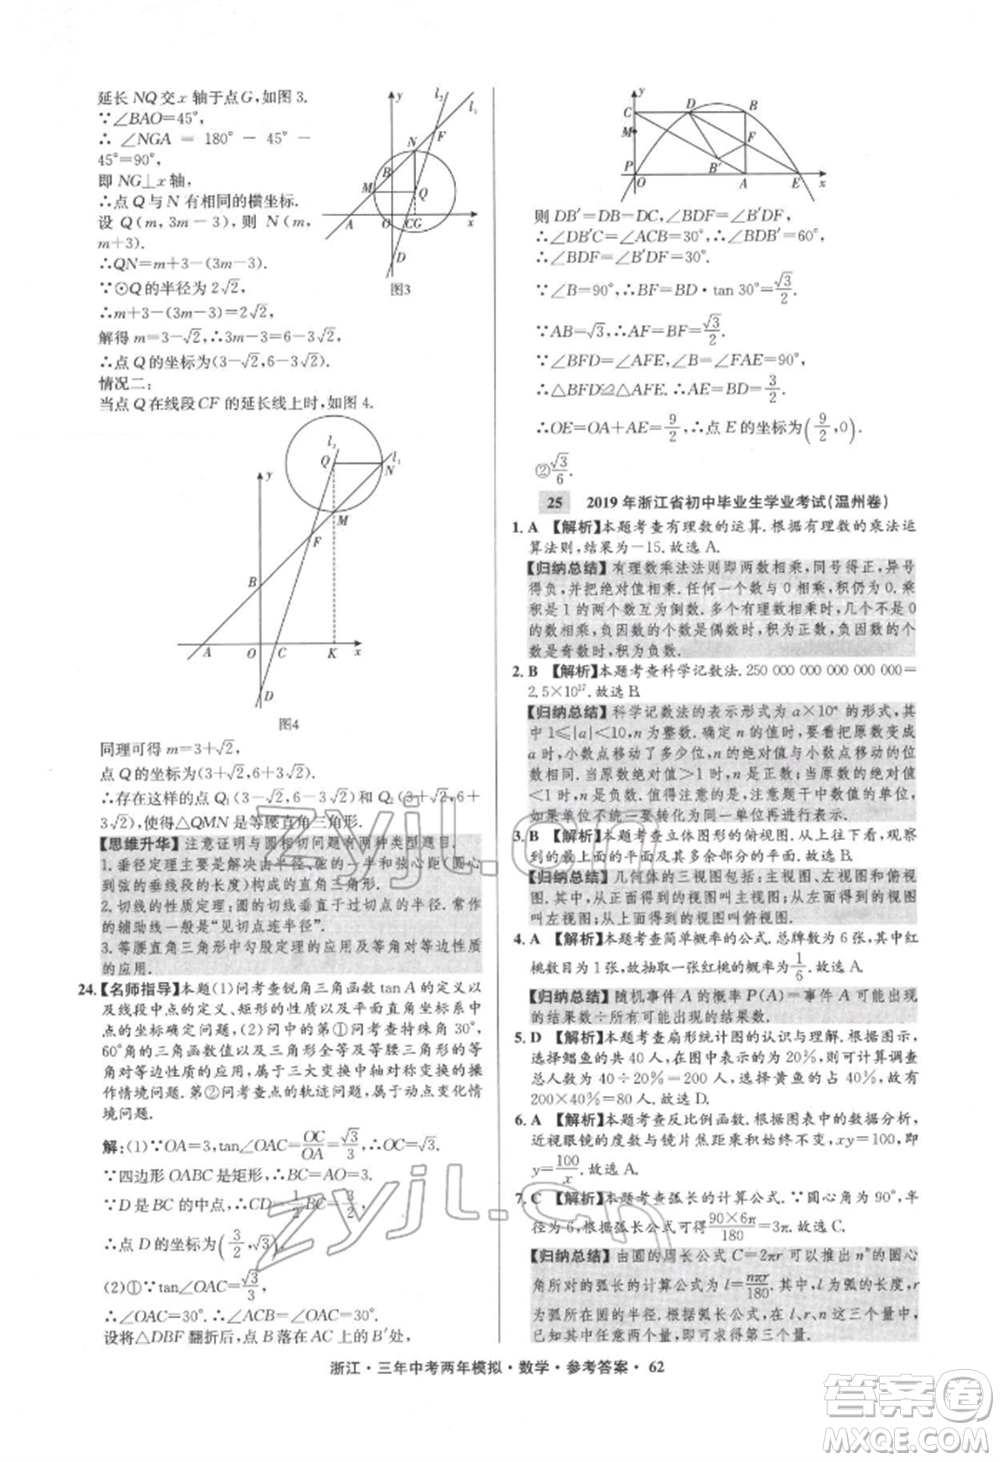 延长 NQ 交 x 轴于点 G,如图 3.
∵∠BAO=45°,
∴ ∠NGA = 180° - 45° -
45°=90°,
即 NG⊥x 轴,
∴点 Q 与 N 有相同的横坐标.
设 Q (m, 3m - 3), 则 N (m,
m+3).
∴QN=m+3-(3m-3).
∵⊙Q 的半径为 2√2,
∴m+3-(3m-3)=2√2,
解得 m=3-√2,∴3m-3=6-3√2,
∴点 Q 的坐标为(3-√2,6-3√2).
情况二:
当点 Q 在线段 CF 的延长线上时,如图 4.
y l₂ l₁
F
N
B
M Q
A O CG x
D
图3
y l₂
Q N l₁
M
F
B
A O C K x
D
图4
同理可得 m=3+√2,
点 Q 的坐标为(3+√2,6+3√2).
∴存在这样的点 Q₁(3-√2,6-3√2),Q₂(3+√2,6+
3√2),使得△QMN 是等腰直角三角形.
【思维升华】注意证明与圆相切问题有两种类型题目.
1.垂径定理主要是解决由半径、弦的一半和弦心距(圆心
到弦的垂线段的长度)构成的直角三角形.
2.切线的性质定理:圆的切线垂直于过切点的半径.常作
的辅助线一般是“见切点连半径”.
3.等腰直角三角形中勾股定理的应用及等腰三角形性质
的应用.
24.【名师指导】本题(1)问考查锐角三角函数 tan A 的定义以
及线段中点的定义、矩形的性质以及由线段的长度求点
的坐标确定问题,(2)问中的第①问考查特殊角 30°,
60°角的三角函数值以及三角形全等及等腰三角形的性
质的综合应用,属于三大变换中轴对称变换的操
作情境问题.第②问考查点的轨迹问题,属于动点变化情
境问题.
解:(1)∵OA=3,tan∠OAC=OC/OA=√3/3,∴OC=√3.
∵四边形 OABC 是矩形,∴BC=AO=3.
∵D 是 BC 的中点,∴CD=1/2BC=3/2,
∴点 D 的坐标为(3/2,√3).
(2)①∵tan∠OAC=√3/3,
∴∠OAC=30°,∴∠ACB=∠OAC=30°.
设将△DBF 翻折后,点 B 落在 AC 上的 B′处,
y
C D B
M F
B′
P O A E x
则 DB′=DB=DC,∠BDF=∠B′DF,
∴∠DB′C=∠ACB=30°,∴∠BDB′=60°,
∴∠BDF=∠B′DF=30°.
∵∠B=90°,∴BF=BD·tan 30°=√3/2.
∵AB=√3,∴AF=BF=√3/2.
∵∠BFD=∠AFE,∠B=∠FAE=90°,
∴△BFD≌△AFE,∴AE=BD=3/2,
∴OE=OA+AE=9/2,∴点 E 的坐标为(9/2,0).
②√3/6.
25 2019 年浙江省初中毕业生学业考试(温州卷)
1. A 【解析】本题考查有理数的运算.根据有理数的乘法运
算法则,结果为-15.故选 A.
【归纳总结】有理数乘法法则即两数相乘,同号得正,异号
得负,并把绝对值相乘.任何一个数与 0 相乘,积为 0;乘
积是 1 的两个数互为倒数.多个有理数相乘时,几个不是 0
的数相乘,负因数的个数是偶数时,积为正数,负因数的个
数是奇数时,积为负数.
2. B 【解析】本题考查科学记数法.250 000 000 000 000 000=
2.5×10¹⁷.故选 B.
【归纳总结】科学记数法的表示形式为 a×10ⁿ 的形式,其
中 1≤|a|<10,n 为整数.确定 n 的值时,要看把原数变成
a 时,小数点移动了多少位,n 的绝对值与小数点移动的位
数相同.当原数绝对值>1 时,n 是正数;当原数的绝对值
<1 时,n 是负数.此外,注意题干中数值的单位,
如果单位不统一要先转换为同一单位再进行表示.
3. B 【解析】本题考查立体图形的俯视图.从上往下看,观察
到的是最上面的部分.故选 B.
【归纳总结】几何体的三视图包括:主视图、左视图和俯视
图.其中,从正面看得到的图叫主视图;从左面看得到的图
叫左视图;从上面看得到的图叫俯视图.
4. A 【解析】本题考查简单概率的公式.总牌数为 6 张,其中红
桃数目为 1 张,故抽取一张是红桃的概率为1/6.故选 A.
【归纳总结】随机事件 A 的概率 P(A)=事件 A 可能出现
的结果数÷所有可能出现的结果数.
5. D 【解析】本题考查扇形统计图的认识与理解.观察图示,
选择鲳鱼的共有 40 人,占总人数的 20%,则可计算调查
总人数为 40÷20%=200(人),选择黄鱼的占 40%,可得
人数为 200×40%=80(人).故选 D.
6. A 【解析】本题考查反比例函数.根据图表中的数据分析,
近视眼镜的度数与镜片焦距的乘积不变,xy=100,即
y=100/x.故选 A.
7. C 【解析】本题考查弧长的计算公式.∵圆心角为 90°,半
径为 6,根据弧长公式可得90×6π/180=3π.故选 C.
【归纳总结】由圆的周长公式 C=2πr 可以推出 n°的圆心
角所对的弧长的计算公式为 l=nπr/180,其中 l 为弧的长度,
r 为弧所在的圆的半径.只要知道了 l、r、n 这三个量中的
任意两个量,就可以求出第三个量.
浙江·三年中考两年模拟·数学·参考答案·62
zyjl.cn
zyjl.cn
答案圈
MXQE.COM